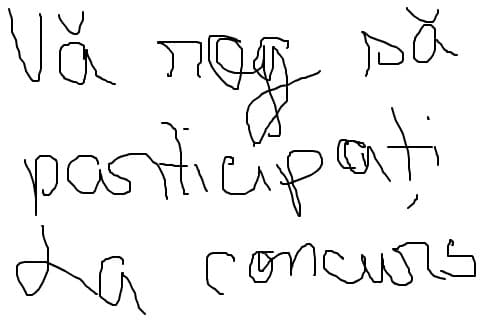 Vă rog să
participați
la concurs